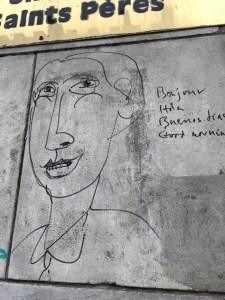 Saints Pères
Bonjour
Hola
Buenos dias
Good mornin